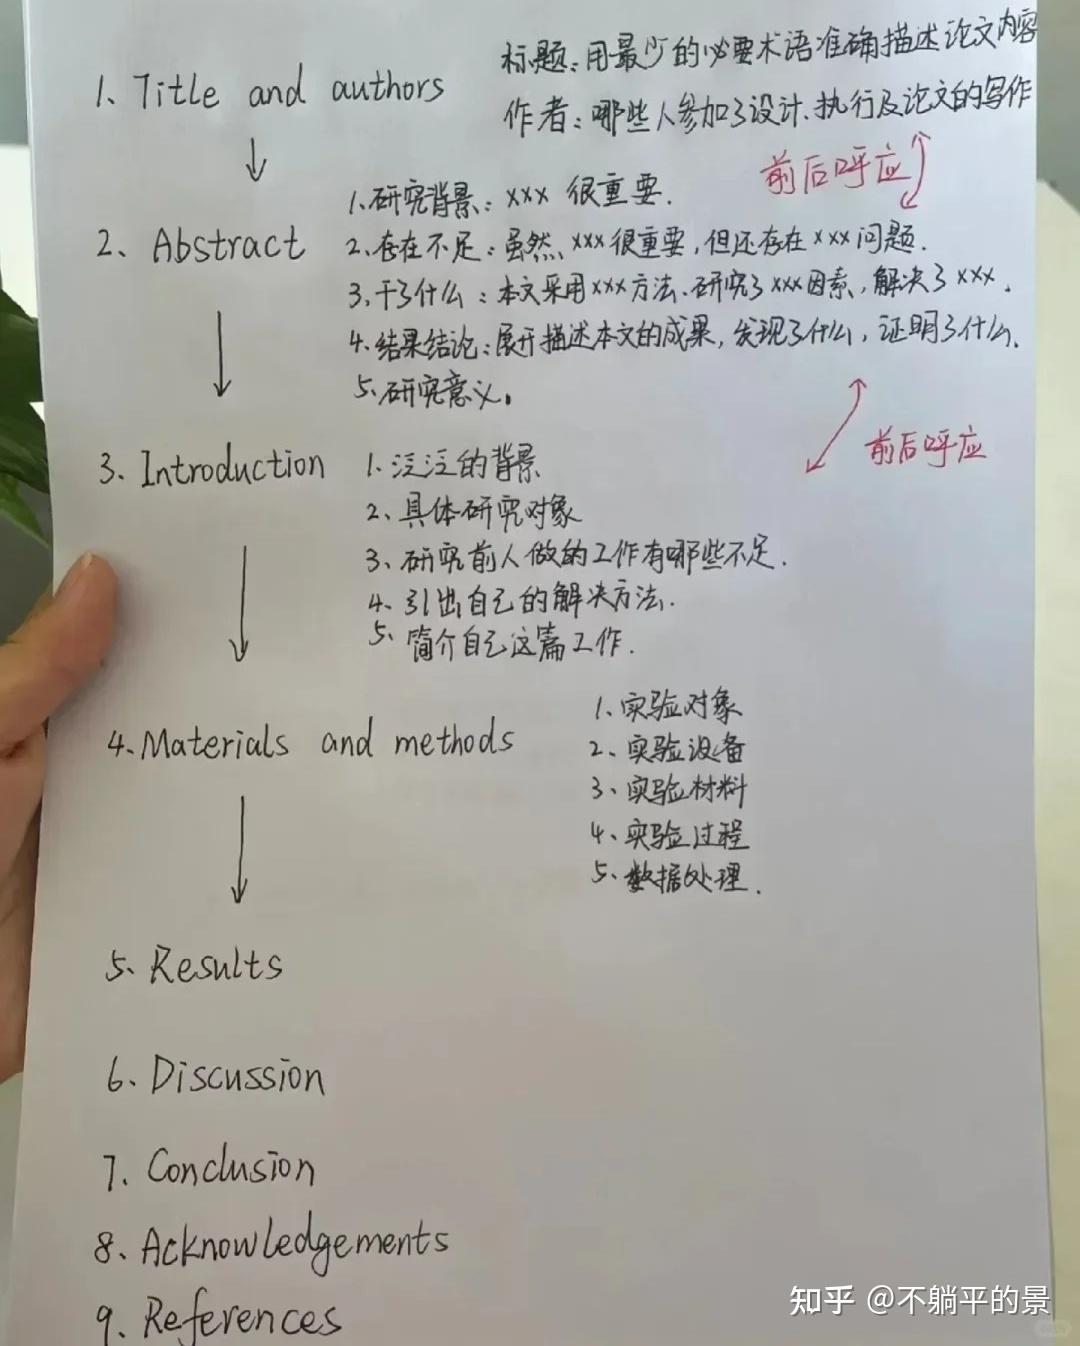 1、Title and authors
标题：用最少的必要术语准确描述论文内容
作者：哪些人参加了设计、执行及论文的写作
前后呼应
2、Abstract
1、研究背景：xxx 很重要.
2、存在不足：虽然xxx很重要，但还存在xxx问题.
3、干了什么：本文采用xxx方法、研究了xxx因素，解决了xxx.
4、结果结论：展开描述本文的成果，发现了什么，证明了什么.
5、研究意义。
前后呼应
3、Introduction
1、泛泛的背景
2、具体研究对象
3、研究前人做的工作有哪些不足.
4、引出自己的解决方法.
5、简介自己这篇工作.
4、Materials and methods
1、实验对象
2、实验设备
3、实验材料
4、实验过程
5、数据处理.
5、Results
6、Discussion
7、Conclusion
8、Acknowledgements
9、References
知乎 @不躺平的景